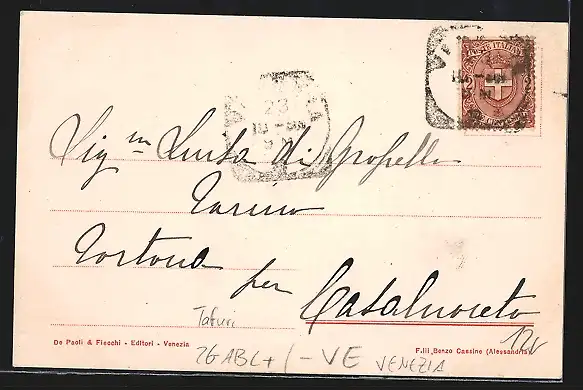 POSTE ITALIANE
23
Sig.na Luisa di Gropello
Tarino
Tortona per
Casalnoceto
Tafuri
12v
De Paoli & Fiecchi - Editori - Venezia
F.lli Benzo Cassine (Alessandria)
2GABC+/-VE VENEZIA